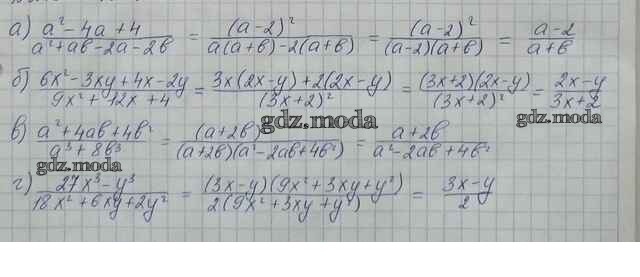 а) a²-4a+4 / a²+ab-2a-2b = (a-2)² / a(a+b)-2(a+b) = (a-2)² / (a-2)(a+b) = a-2 / a+b
б) 6x²-3xy+4x-2y / 9x²+12x+4 = 3x(2x-y)+2(2x-y) / (3x+2)² = (3x+2)(2x-y) / (3x+2)² = 2x-y / 3x+2
gdz.moda
gdz.moda
в) a²+4ab+4b² / a³+8b³ = (a+2b)² / (a+2b)(a²-2ab+4b²) = a+2b / a²-2ab+4b²
gdz.moda
г) 27x³-y³ / 18x²+6xy+2y² = (3x-y)(9x²+3xy+y²) / 2(9x²+3xy+y²) = 3x-y / 2